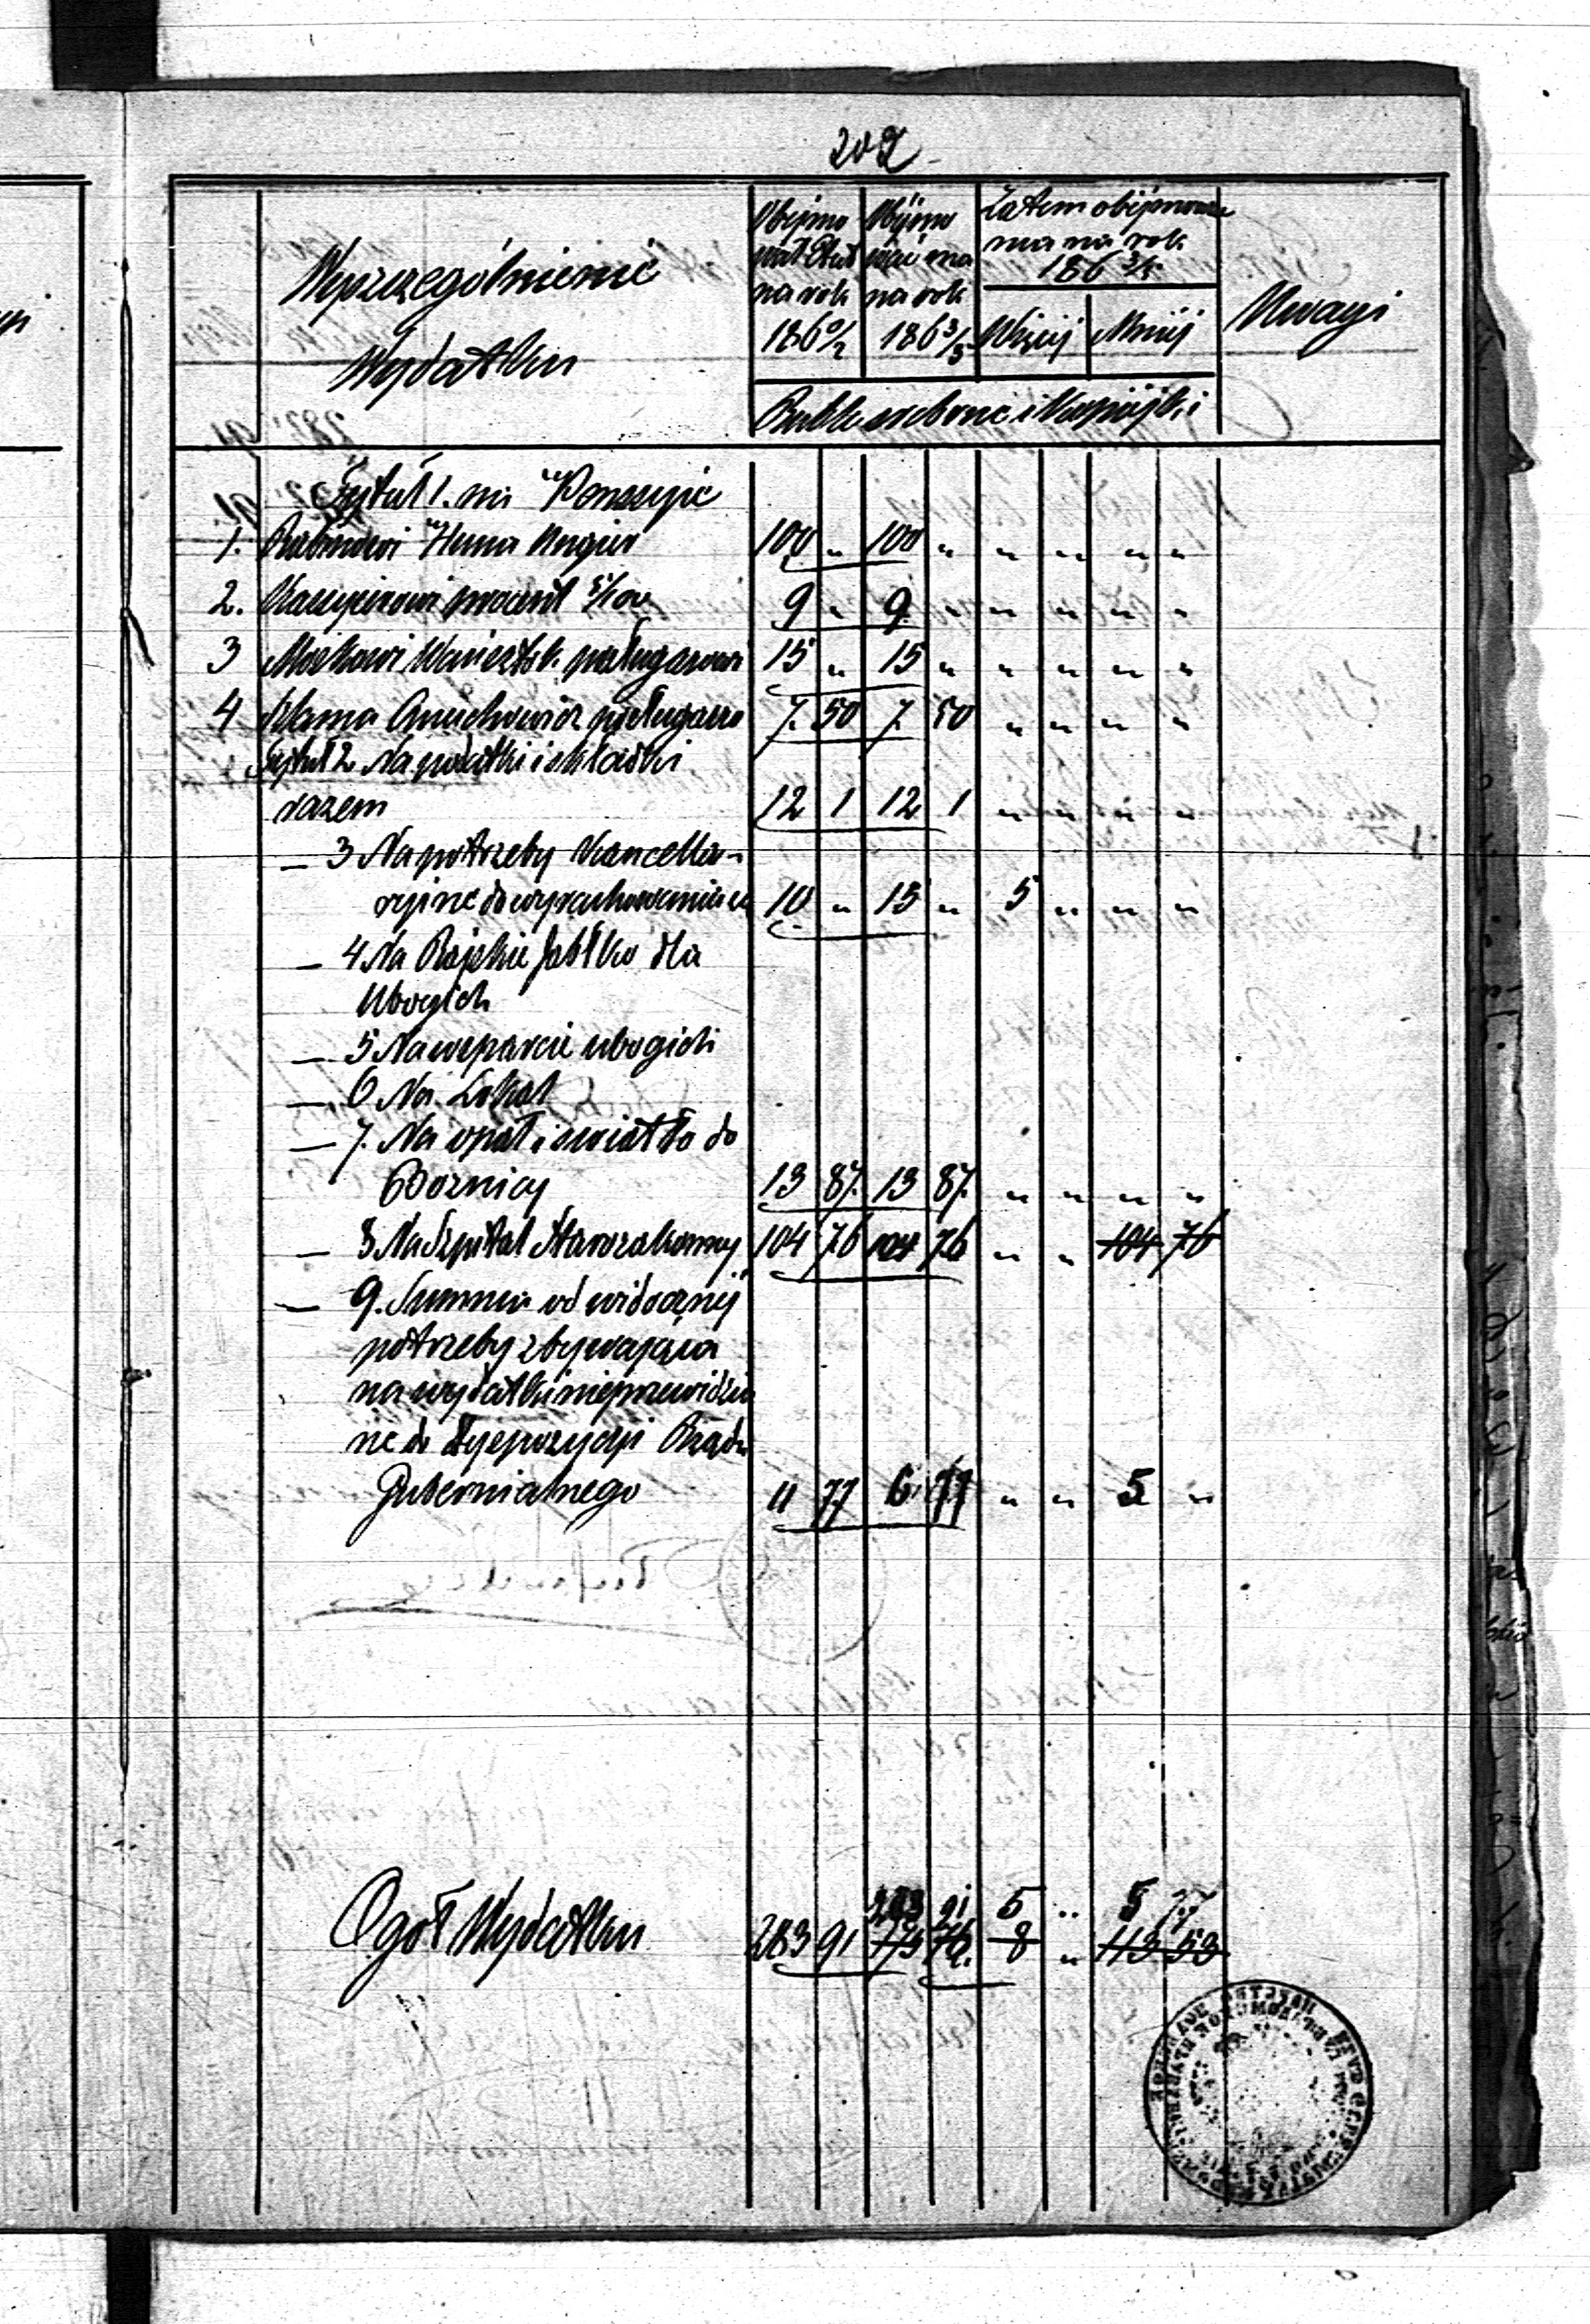 202
Wyszczególnienie
Wydatku
Obejmo
wał Etat
na rok
186 0/2
Obejmo
wać ma
na rok
186 3/5
Zatem obejmować
ma na rok
186 3/5
Więcej
Mniej
Uwagi
Ruble srebrne i Kopiejki
Tytuł 1. na Pensyje
1. Rabinowi 100 " 100 " " " " "
2. Kassyerowi procent 5/100 9 " 9 " " " " "
3 Moszkowi posługaczowi 15 " 15 " " " " "
4 Szlama posługacz 7. 50 7. 50 " " " "
Tytuł 2 Na podatki i składki
razem 12 1 12 1 " " " "
— 3 Na potrzeby Kancella-
ryjne do wyrachowania 10 " 15 " 5 " " "
— 4 Na Rajskie Jabłko dla
Ubogich
— 5 Na wsparcie ubogich
— 6 Na Lokal
— 7. Na opał i swiatło do
Bożnicy 13 87. 13 87. " " " "
— 8 Na Szpital Starozakonny 104 76 104 76 " " 104 76
— 9. Summa od widocznej
potrzeby zbywająca
na wydatki nieprzewidzia
ne do Dyspozycyi Rządu
Gubernialnego 11 77 6. 77 " " 5 "
283 91 5 " 5 77
Ogół Wydatku 283 91 76. 8 " 113 53